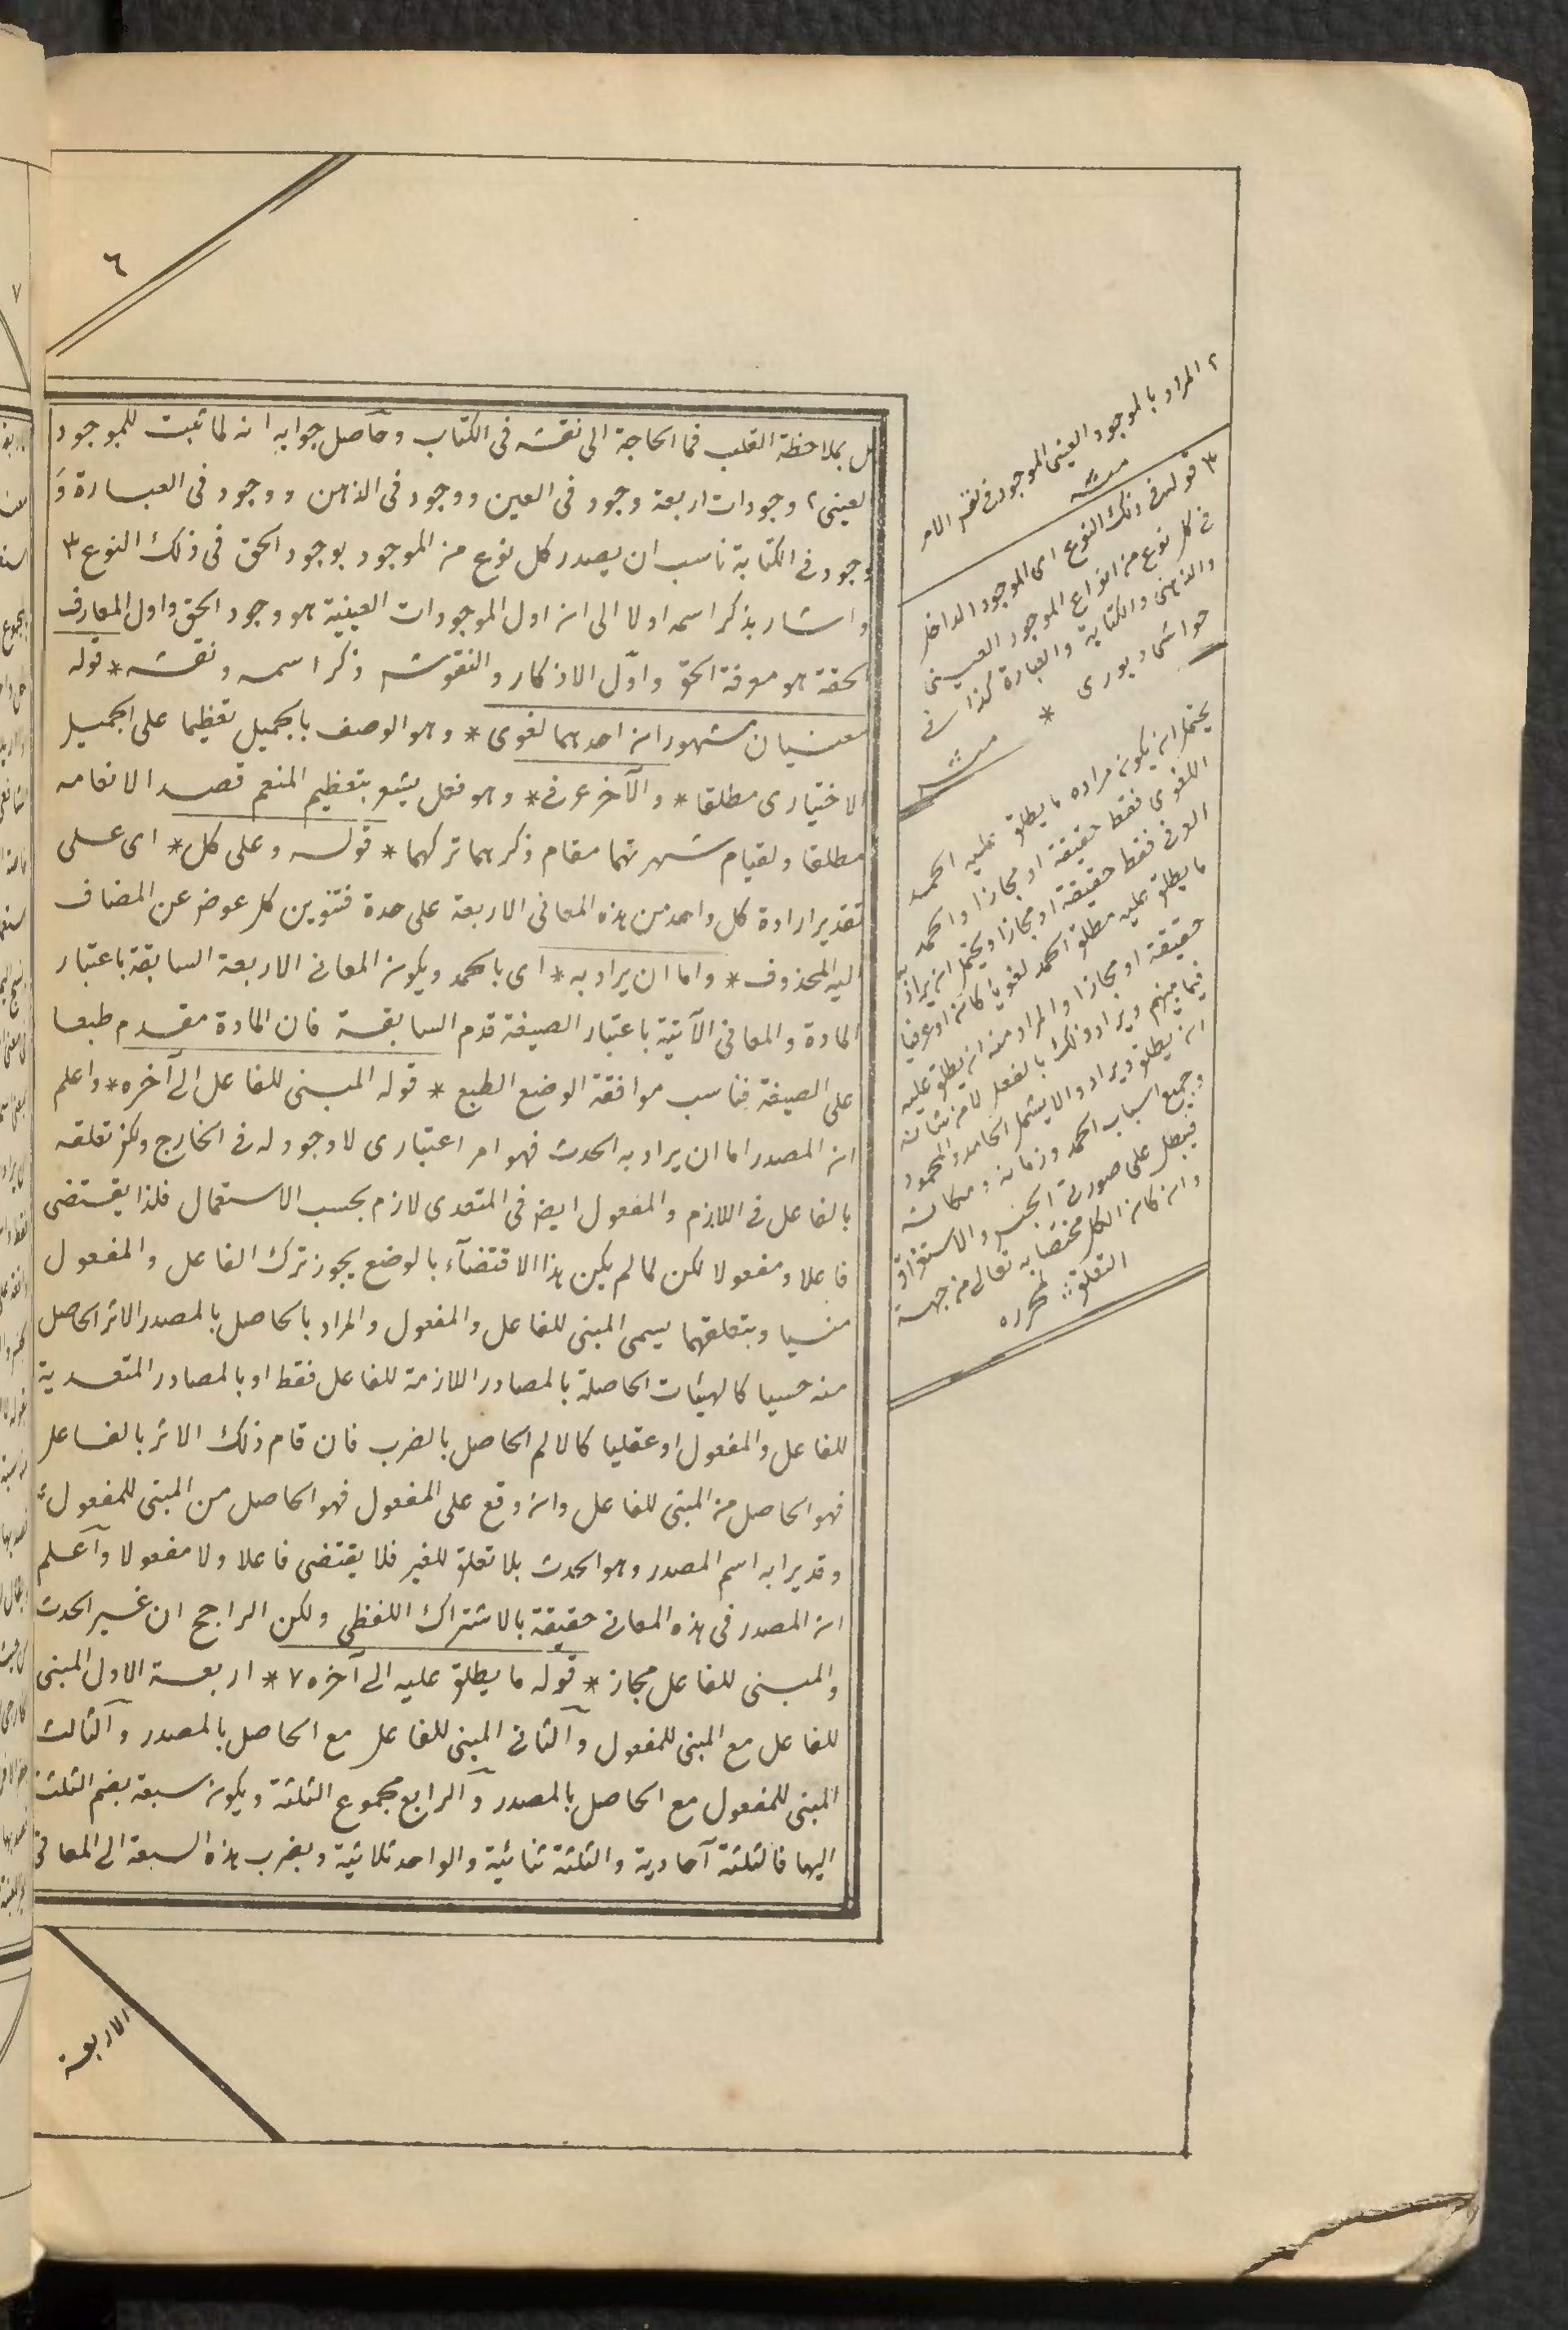 ٦
بل بملاحظة القلب فما الحاجة الى نقشه فى الكتاب وحاصل جوابه انه لما ثبت للموجود
العينى ٢ وجودات اربعة وجود فى العين ووجود فى الذهن ووجود فى العبارة و
وجود فى الكتابة ناسب ان يصدر كل نوع من الموجود بوجود الحق فى ذلك النوع ٣
واشار بذكر اسمه اولا الى ان اول الموجودات العينية هو وجود الحق واول المعارف
الحقة هو معرفة الحق واول الاذكار والنقوش ذكر اسمه ونقشه * قوله
معنيان مشهوران احدهما لغوى * وهو الوصف بالجميل تعظيما على الجميل
الاختيارى مطلقا * والآخر عرفى * وهو فعل يشعر بتعظيم المنعم قصد الانعامه
مطلقا ولقيام شهرتهما مقام ذكرهما تركهما * قوله وعلى كل * اى على
تقدير ارادة كل واحد من هذه المعانى الاربعة على حدة فتنوين كل عوض عن المضاف
اليه المحذوف * واما ان يراد به * اى بالحمد ويكون المعانى الاربعة السابقة باعتبار
المادة والمعانى الآتية باعتبار الصيغة قدم السابقة فان المادة مقدم طبعا
على الصيغة فناسب موافقة الوضع الطبع * قوله المبنى للفاعل الى آخره * واعلم
ان المصدر اما ان يراد به الحدث فهو امر اعتبارى لا وجود له فى الخارج ولكن تعلقه
بالفاعل فى اللازم والمفعول ايضا فى المتعدى لازم بحسب الاستعمال فلذا يقتضى
فاعلا ومفعولا لكن لما لم يكن هذا الاقتضاء بالوضع يجوز ترك الفاعل والمفعول
منسيا وبتعلقهما يسمى المبنى للفاعل والمفعول والمراد بالحاصل بالمصدر الاثر الحاصل
منه حسيا كالهيئات الحاصلة بالمصادر اللازمة للفاعل فقط او بالمصادر المتعدية
للفاعل والمفعول او عقليا كالالم الحاصل بالضرب فان قام ذلك الاثر بالفاعل
فهو الحاصل من المبنى للفاعل وان وقع على المفعول فهو الحاصل من المبنى للمفعول
وقد يراد به اسم المصدر وهو الحدث بلا تعلق للغير فلا يقتضى فاعلا ولا مفعولا واعلم
ان المصدر فى هذه المعانى حقيقة بالاشتراك اللفظى ولكن الراجح ان غير الحدث
والمبنى للفاعل مجاز * قوله ما يطلق عليه الى آخره ٧ * اربعة الاول المبنى
للفاعل مع المبنى للمفعول والثانى المبنى للفاعل مع الحاصل بالمصدر والثالث
المبنى للمفعول مع الحاصل بالمصدر والرابع مجموع الثلثة ويكون سبعة بضم الثلث
اليها فالثلثة آحادية والثلثة ثنائية والواحد ثلاثية وبضرب هذه السبعة الى المعانى
الاربعة
٢ المراد بالموجود العينى الموجود فى نفس الامر
منه
٣ قوله فى ذلك النوع اى الموجود الداخل
فى كل نوع من انواع الموجود العينى
والذهنى والكتابة والعبارة كذا فى
حواشى
* منه
يحتمل ان يكون مراده ما يطلق عليه الحمد
اللغوى فقط حقيقة او مجازا والحمد
العرفى فقط حقيقة او مجازا ويحتمل ان يراد به
ما يطلق عليه مطلق الحمد لغويا كان او عرفيا
حقيقة او مجازا والمراد منه ان يطلق عليه
فيما بينهم ويراد ذلك بالفعل لا من شانه
ان يطلق ويراد والا يشمل الحامد والمحمود
وجميع اسباب الحمد وزمانه ومكانه
فيبطل على صورتى الجنس والاستغراق
وان كان الكل مختصا به تعالى من جهة
التعلق لمحرره